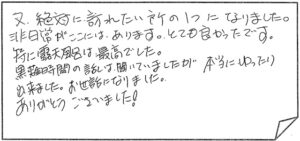 又、絶対に訪れたい所の1つになりました。
非日常がここには、あります。とても良かったです。
特に露天風呂は最高でした。
時間の話しは聞いていましたが 本当にゆったり
出来ました。お世話になりました。
ありがとうございました!